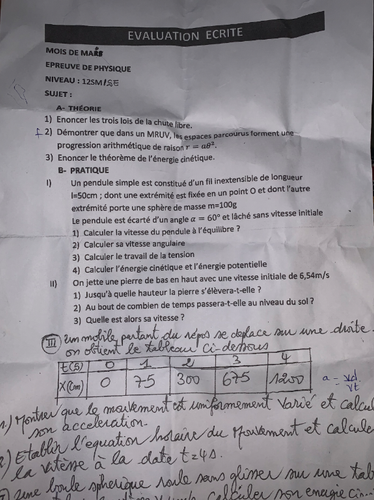 EVALUATION ECRITE
MOIS DE MARS
EPREUVE DE PHYSIQUE
NIVEAU : 12SM/SE
SUJET :
A- THÉORIE
1) Enoncer les trois lois de la chute libre.
2) Démontrer que dans un MRUV, les espaces parcourus forment une
progression arithmétique de raison r = aθ².
3) Enoncer le théorème de l'énergie cinétique.
B- PRATIQUE
I) Un pendule simple est constitué d'un fil inextensible de longueur
l=50cm ; dont une extrémité est fixée en un point O et dont l'autre
extrémité porte une sphère de masse m=100g
Le pendule est écarté d'un angle α = 60° et lâché sans vitesse initiale
1) Calculer la vitesse du pendule à l'équilibre ?
2) Calculer sa vitesse angulaire
3) Calculer le travail de la tension
4) Calculer l'énergie cinétique et l'énergie potentielle
II) On jette une pierre de bas en haut avec une vitesse initiale de 6,54m/s
1) Jusqu'à quelle hauteur la pierre s'élèvera-t-elle ?
2) Au bout de combien de temps passera-t-elle au niveau du sol ?
3) Quelle est alors sa vitesse ?
III) un mobile partant du repos se déplace sur une droite.
on obtient le tableau ci-dessous
t(s) 0 1 2 3 4
X(cm) 0 75 300 675 1200
1) Montrer que le mouvement est uniformement varié et calcu
son acceleration.
2) Etablir l'equation horaire du Mouvement et calcule
la vitesse à la date t=4s.
une boule spherique roule sans glisser sur une tab
calculer son energie ci